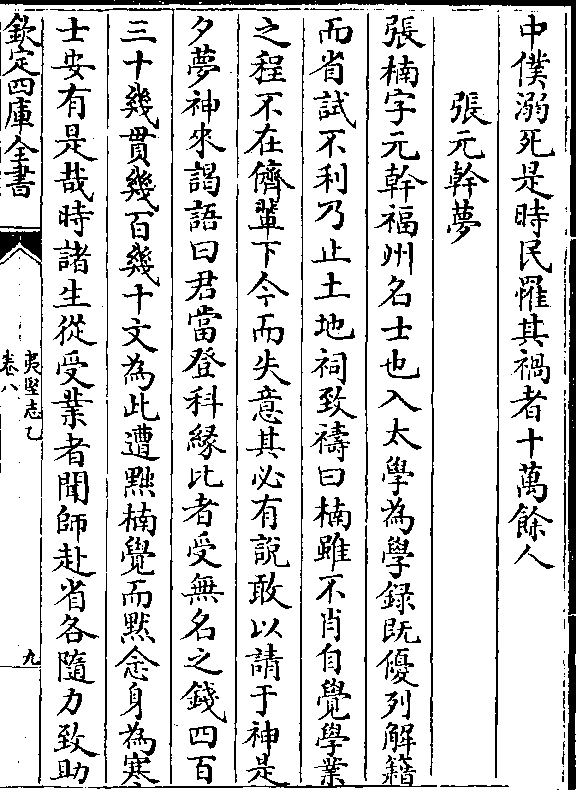 中僕溺死是時民罹其禍者十萬餘人
張元幹夢
張楠字元幹福州名士也入太學為學録既優列解籍
而省試不利乃止土地祠致禱曰楠雖不肖自覺學業
之程不在儕輩下今而失意其必有說敢以請于神是
夕夢神來謁語曰君當登科緣比者受無名之錢四百
三十幾貫幾百幾十文為此遭黜楠覺而默念身為寒
士安有是哉時諸生從受業者聞師赴省各隨力致助
欽定四庫全書
夷堅志乙
卷八
九